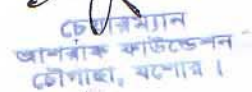 চেয়ারম্যান
আশরাফ ফাউন্ডেশন
চৌগাছা, যশোর।